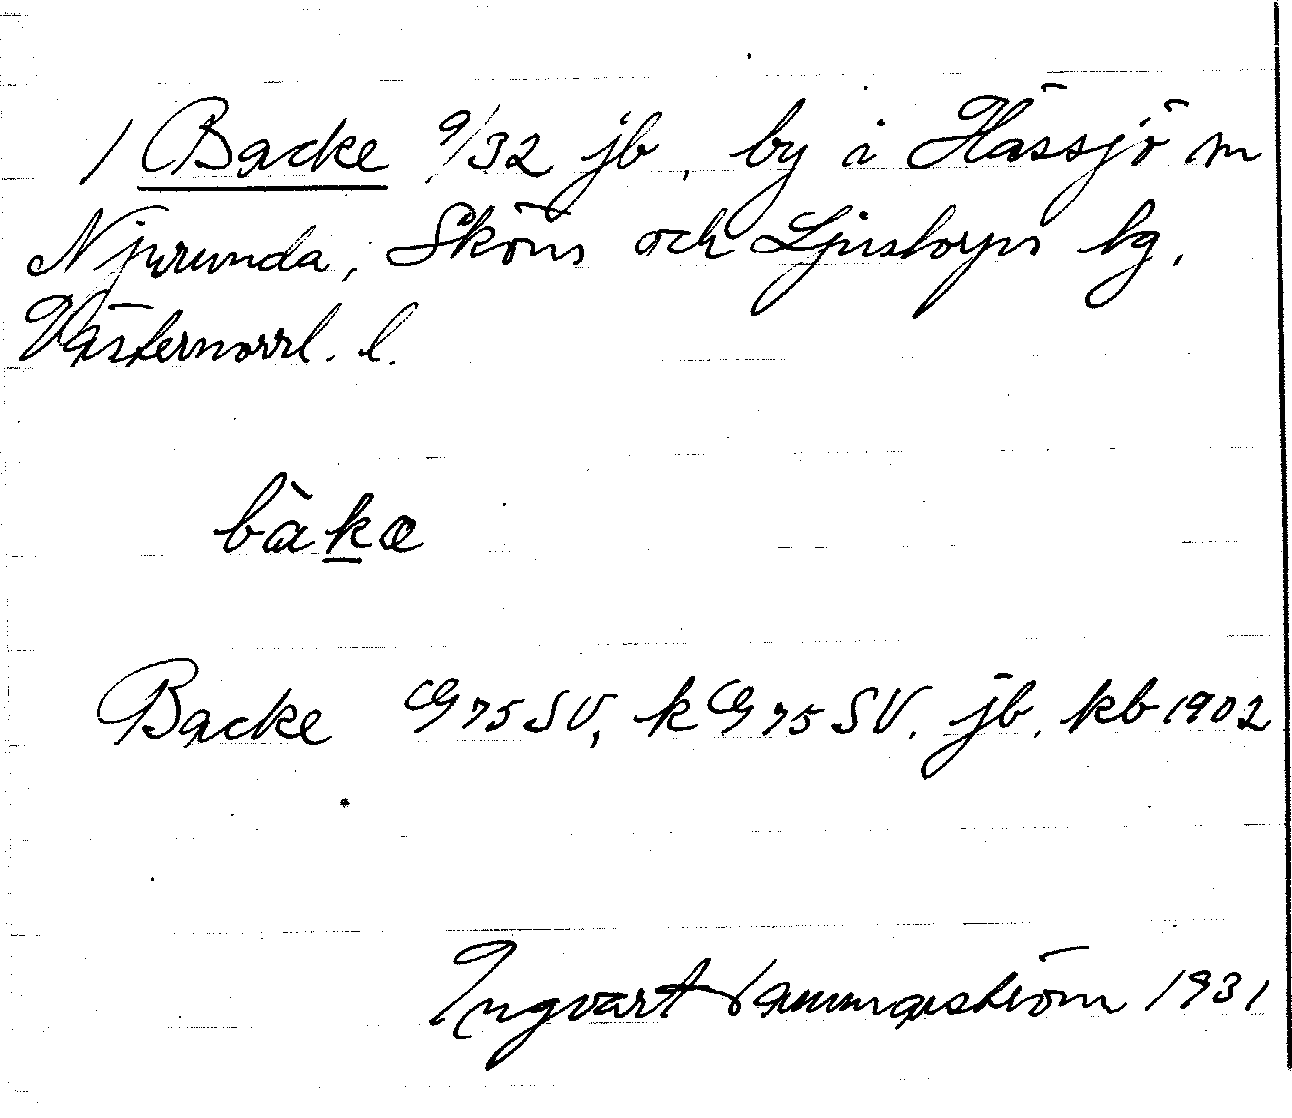 1 Backe 9/32 jb, by i Hässjö sn
Njurunda, Sköns och Ljustorps tg,
Västernorrl. l.
bàka
Backe G 75 SV, k G 75 SV. jb. kb 1902
Ingvart Hammarström 1931